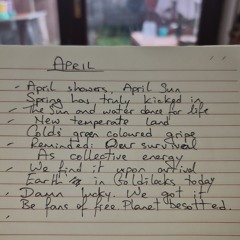 APRIL
- April showers, April Sun
Spring has truly kicked in
- The Sun and water dance for life
New temperate land
- Colds green coloured gripe
- Reminded: Our survival
As collective energy
- We find it upon arrival
Earth is in Goldilocks today
- Damn lucky. We got it
Be fans of free Planet besotted.